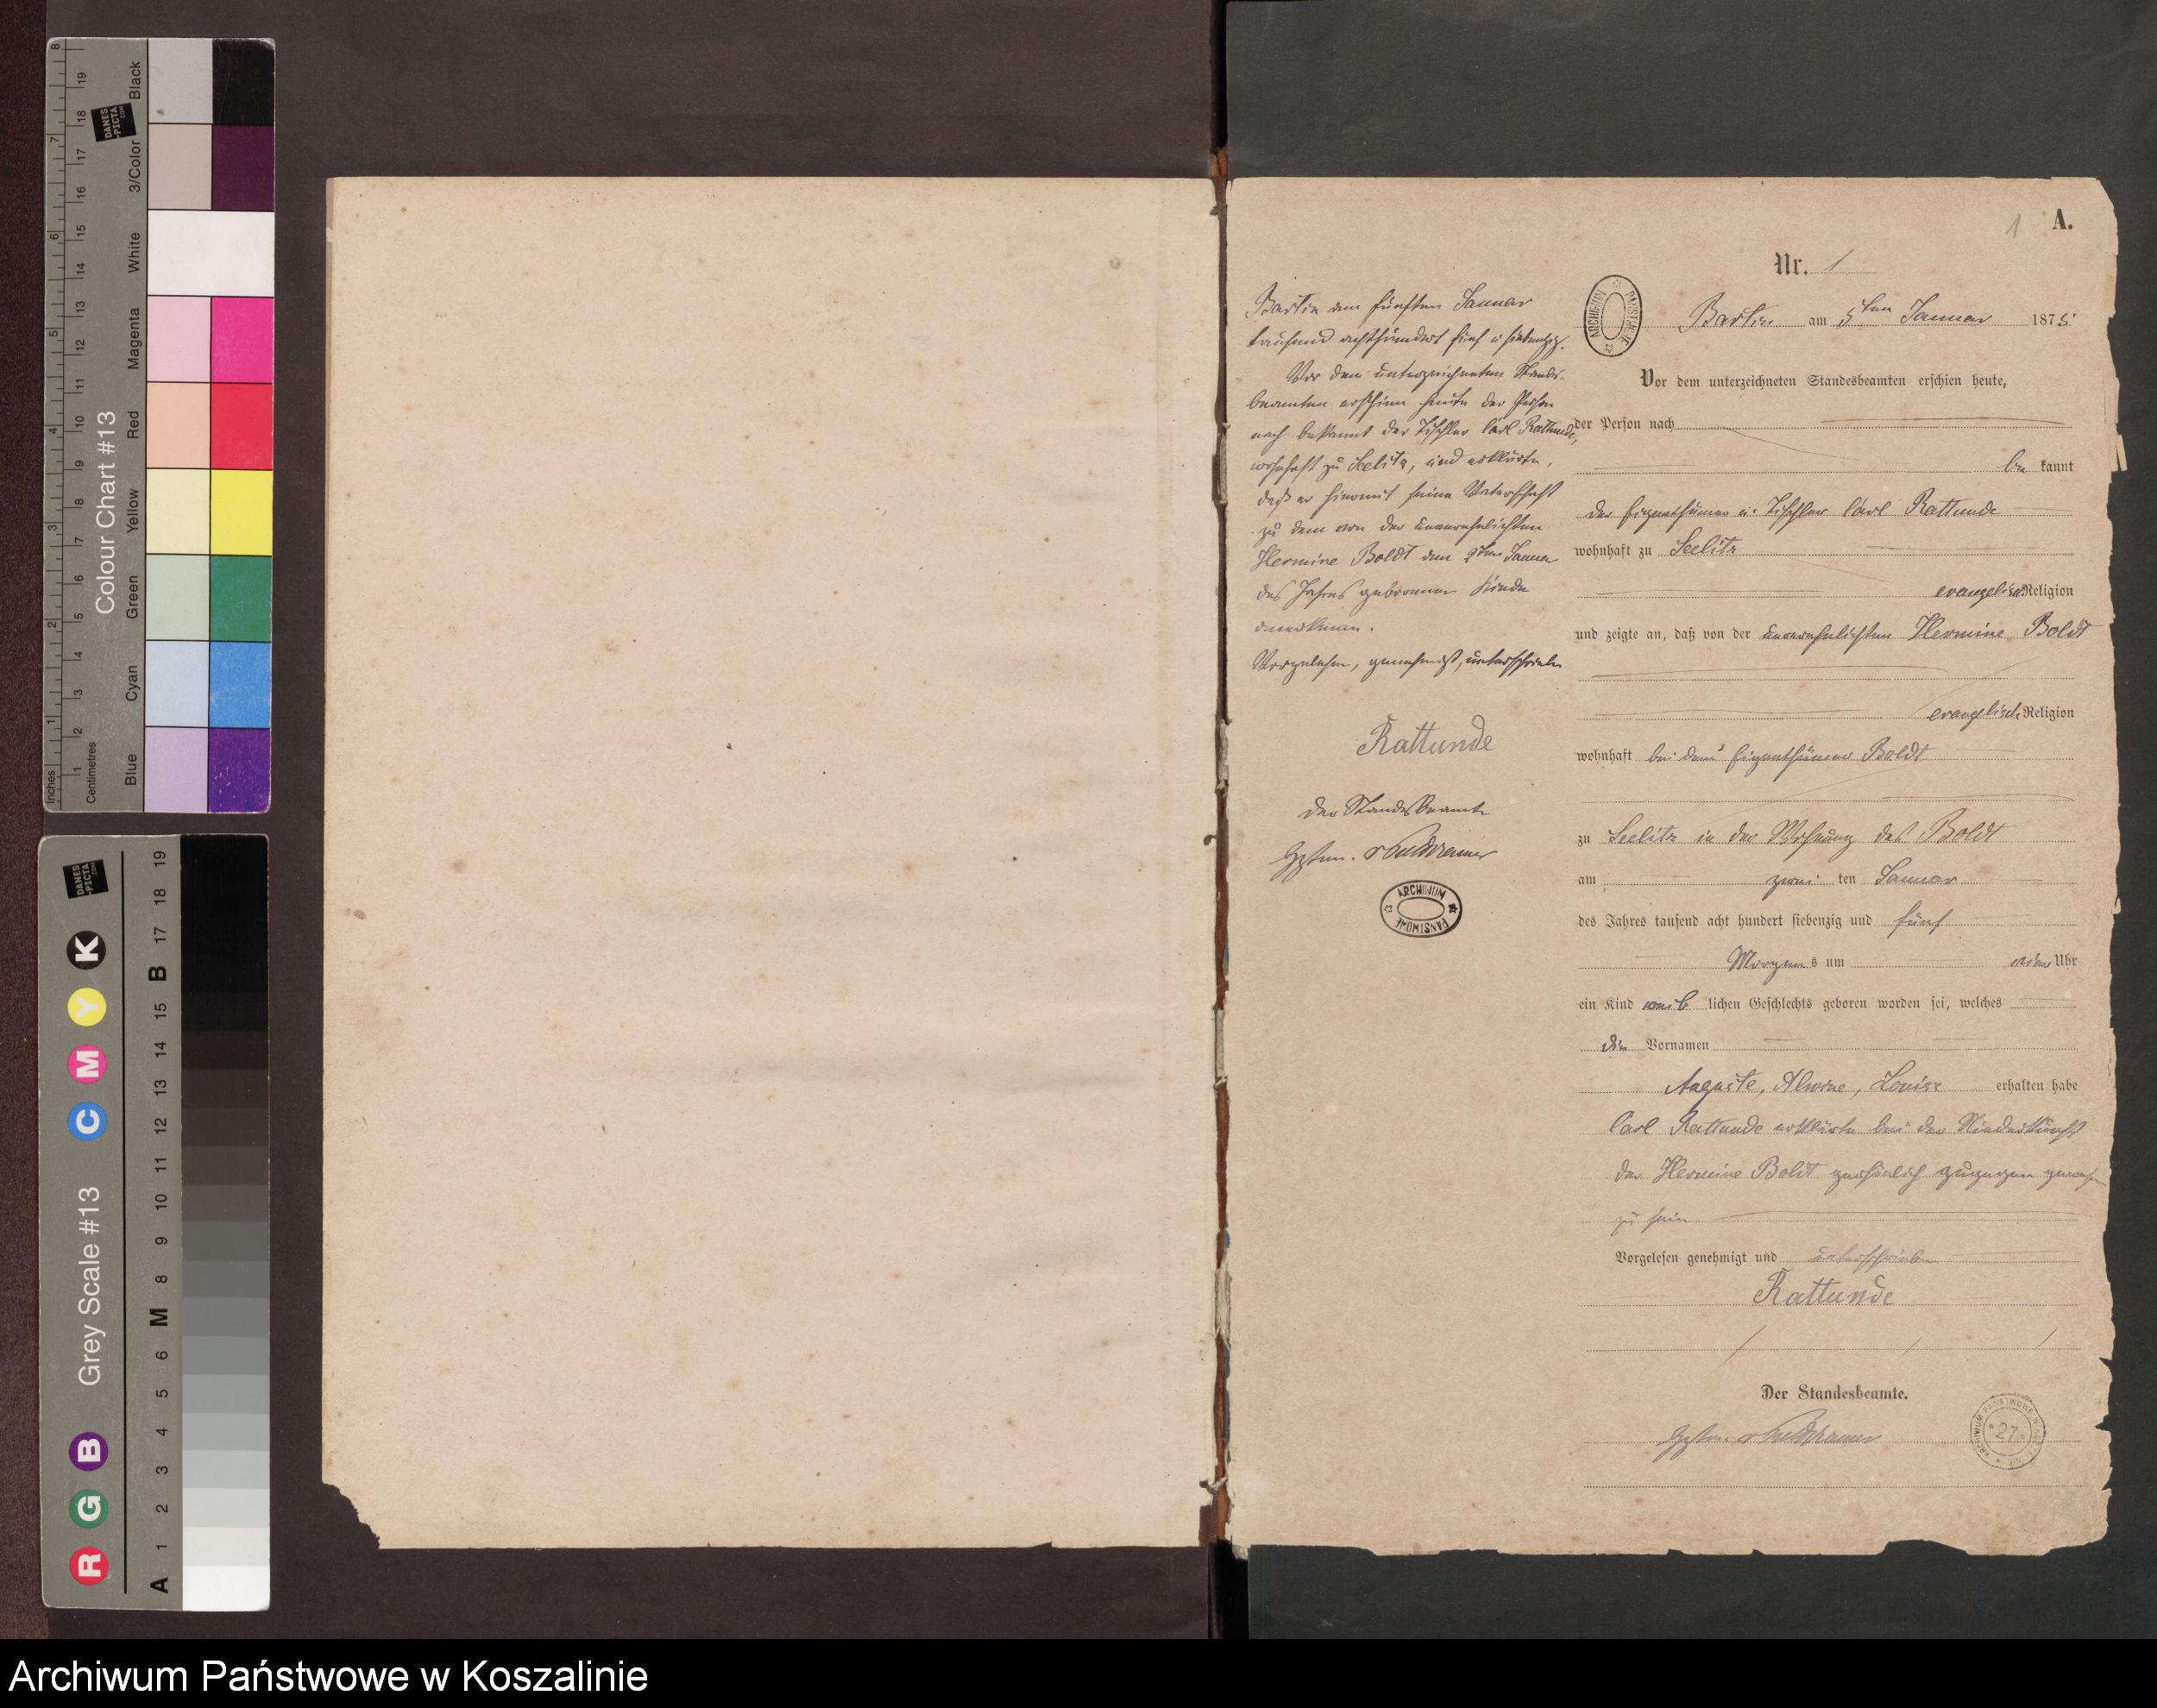 A.
1
Nr. 1
Bartin am 5ten Januar 1875
Vor dem unterzeichneten Standesbeamten erschien heute,
der Person nach
be kannt
der Eigenthümer u. Tischler Carl Rattunde
wohnhaft zu Seelitz
evangelisch Religion
und zeigte an, daß von der unverehelichten Hermine Boldt
evangelisch Religion
wohnhaft bei dem Eigenthümer Boldt
zu Seelitz in der Wohnung des Boldt
am zwei ten Januar
des Jahres tausend acht hundert siebenzig und fünf
Morgens um Uhr
ein Kind weib lichen Geschlechts geboren worden sei, welches
die Vornamen
Auguste, Alwine, Louise erhalten habe
Carl Rattunde erklärte bei der Niederkunft
der Hermine Boldt persönlich zugegen gewesen
zu sein
Vorgelesen genehmigt und unterschrieben
Rattunde
Der Standesbeamte.
Bartin den fünften Januar
tausend achthundert fünf u siebenzig.
Vor dem unterzeichneten Standes-
beamten erschien heute der Person
nach bekannt der Tischler Carl Rattunde,
wohnhaft zu Seelitz, und erklärte,
daß er hiermit seine Vaterschaft
zu dem von der unverehelichten
Hermine Boldt den 2ten Januar
des Jahres geborenen Kinde
anerkenne.
Vorgelesen, genehmigt, unterschrieben
Rattunde
Der Standesbeamte
ARCHIWUM PAŃSTWOWE
ARCHIWUM PAŃSTWOWE
27
Colour Chart #13
Black
3/Color
White
Magenta
Red
Yellow
Green
Cyan
Blue
Inches
Centimetres
DANES-PICTA.COM
Grey Scale #13
R G B C M Y K
A 1 2 3 4 5 6 M 8 9 10 11 12 13 14 15 B 17 18 19
DANES-PICTA.COM
Archiwum Państwowe w Koszalinie